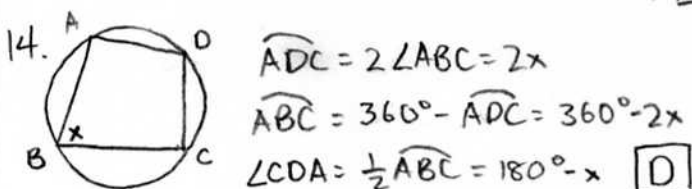 14.
A
D
x
B
C
ADC = 2∠ABC = 2x
ABC = 360° - ADC = 360° - 2x
∠CDA = ½ABC = 180° - x D